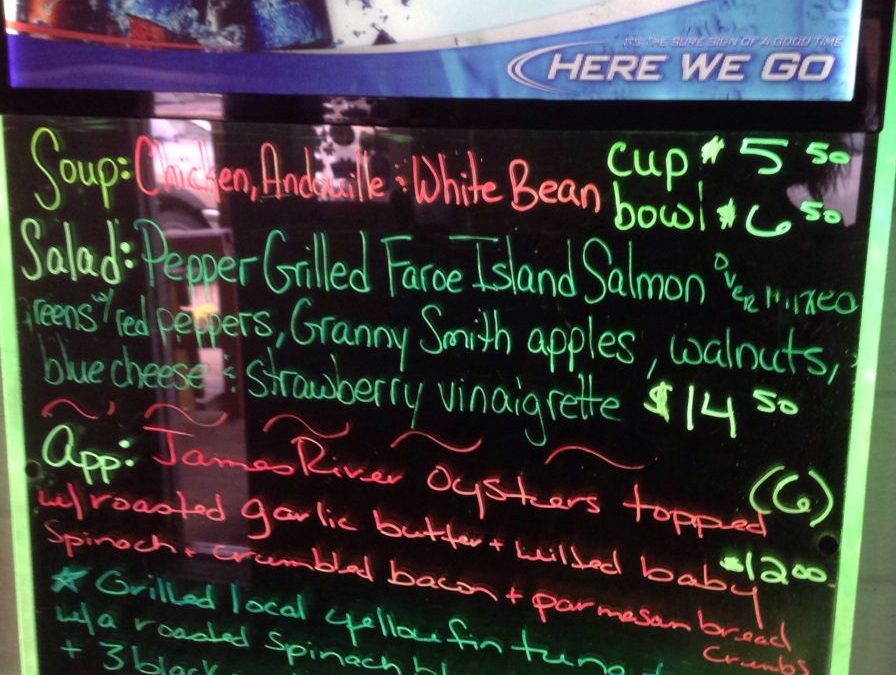 IT'S THE SURE SIGN OF A GOOD TIME
HERE WE GO
Soup: Chicken, Andouille & White Bean cup $5 50
bowl $6 50
Salad: Pepper Grilled Faroe Island Salmon over mixed
greens w/ red peppers, Granny Smith apples, walnuts,
blue cheese & strawberry vinaigrette $14 50
App: James River Oysters topped (6)
w/ roasted garlic butter + wilted baby $12 00
Spinach + crumbled bacon + parmesan bread
crumbs
Grilled local yellowfin tuna
w/a roasted Spinach
+ 3 black